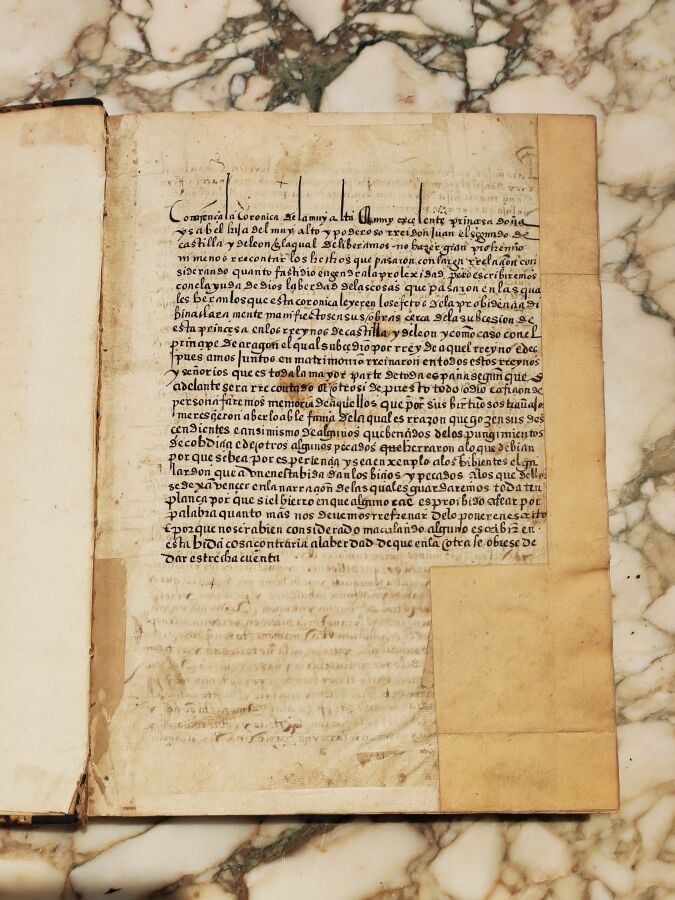 Comiença la Coronica de la muy alta & muy excelente princesa doña
ysabel hija del muy alto y poderoso rrei don Juan el segundo de
castilla y deleon & la qual deliberamos no hazer gran prohemio
ni menos rrecontar los hechos que pasaron con larga rrelaçon con
siderando quanto fastidio engendra la prolexidad pero escribiremos
con el ayuda de dios la berdad de las cosas que pasaron en las qua
les beran los que esta coronica leyeren los efetos de la probidençia di
bina clara mente manifiectos en sus obras cerca de la subcesion de
esta princesa en los rreynos de castilla y deleon y como caso con el
principe de aragon el qual subcedio por rrey de aquel rreyno e des
pues amos juntos en matrimonio rreinaron en todos estos rreynos
y señorios que es toda la mayor parte de toda españa segun que
adelante sera rrecontado & otrosi de puesto todo odio e afiçion de
persona faremos memoria de aquellos que por sus birtuosos trauajos
mereçieron aber loable fama de la qual es rrazon que gozen sus des
cendientes e ansimismo de algunos que bençidos de los pungimientos
de cobdiçia e de otros algunos pecados que herraron a lo que debian
por que se bea por esperiençia y sea enxenplo a los bibientes el ga
lardon que a don en esta bida dan los biçios y pecados a los que dellos
se dexan vencer en la narraçon de las quales guardaremos toda tem
plança por que si el hierro en que alguno cae es proibido afear por
palabra quanto mas nos devemos rrefrenar de lo poner en escrito
e por que no sera bien considerado maculando alguno escribir en
esta bida cosa contraria a la berdad de que en la otra se obiese de
dar estrecha cuenta